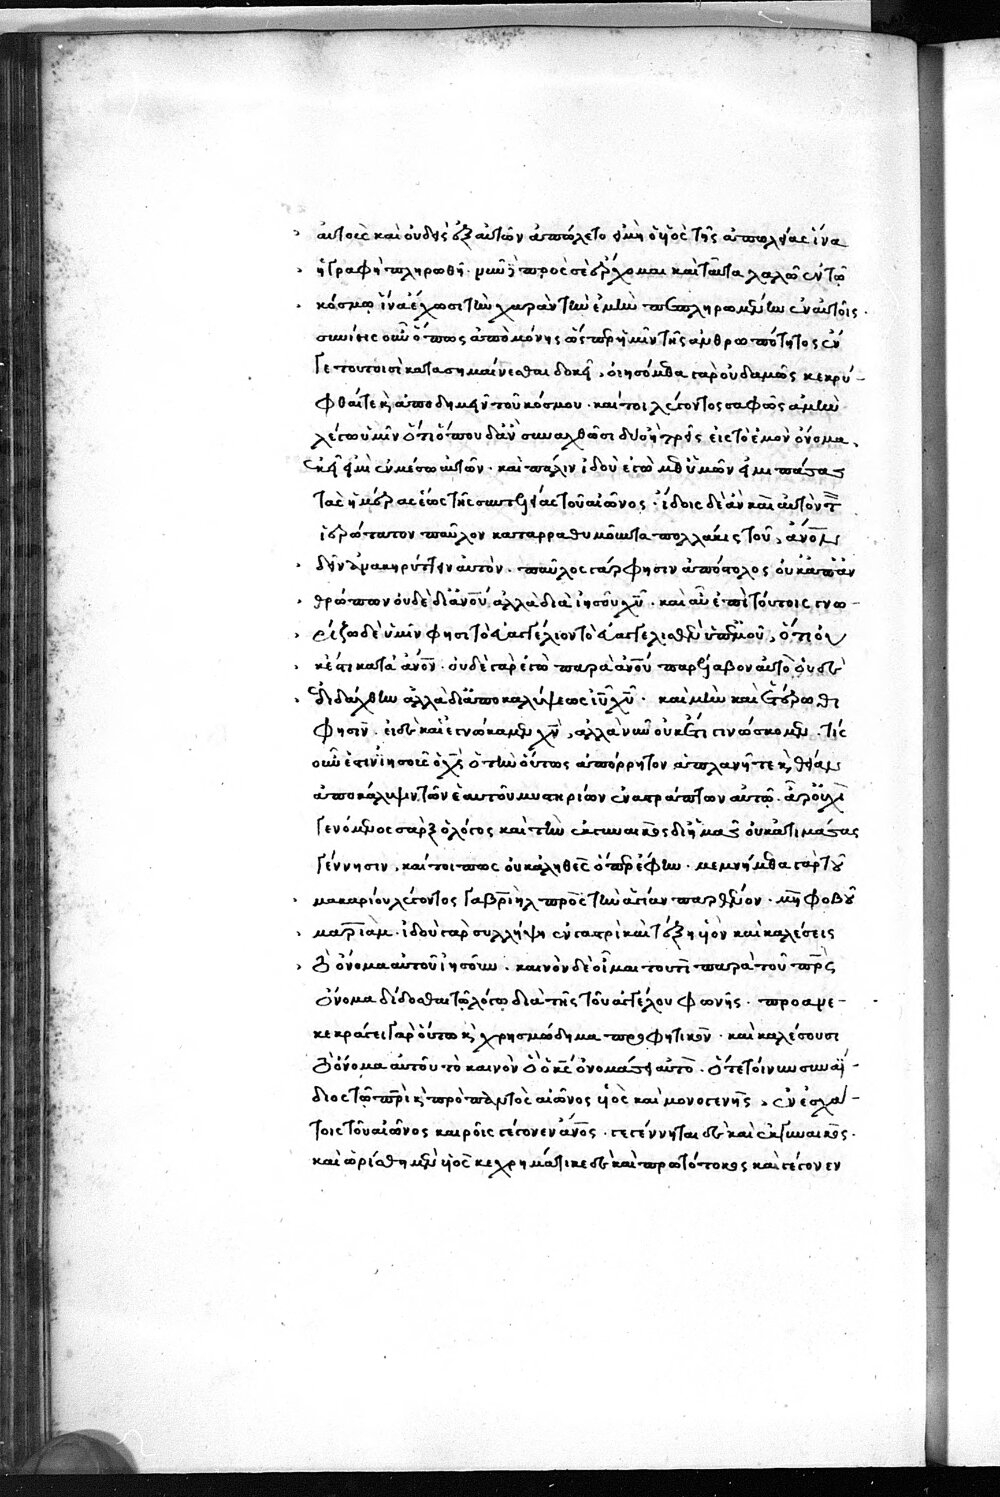 αὐτοῖς καὶ οὐδεὶς ἐξ αὐτῶν ἀπώλετο εἰ μὴ ὁ υἱὸς τῆς ἀπωλείας ἵνα
ἡ γραφὴ πληρωθῇ · νῦν δὲ πρὸς σὲ ἔρχομαι καὶ ταῦτα λαλῶ ἐν τῷ
κόσμῳ ἵνα ἔχωσι τὴν χαρὰν τὴν ἐμὴν πεπληρωμένην ἐν αὐτοῖς ·
συνίης οὖν ὅπως ἀπὸ μόνης ὥσπερ ἡμῖν τῆς ἀνθρωπότητος ἐν
γε τουτοισὶ κατασημαίνεσθαι δοκεῖ , οἰησόμεθα γὰρ οὐδαμῶς κεκρύ-
φθαί τε κ ἀποδημεῖν τοῦ κόσμου · καίτοι λέγοντος σαφῶς ἀμὴν
λέγω ὑμῖν ὅτι ὅπου δἂν συναχθῶσι δύο ἢ τρεῖς εἰς τὸ ἐμὸν ὄνομα ,
ἐκεῖ εἰμὶ ἐν μέσω αὐτῶν · καὶ πάλιν ἰδοὺ ἐγὼ μεθ ὑμῶν εἰμι πάσας
τὰς ἡμέρας ἕως τῆς συντελείας τοῦ αἰῶνος · ἴδοις δὲ ἂν καὶ αὐτὸν τὸν
ἱερώτατον παῦλον καταρραθυμοῦντα πολλάκις τοῦ , ἄνον
δεῖν διακηρύττειν αὐτὸν · παῦλος γάρ φησιν ἀπόστολος οὐκ ἀπ ἀν
θρώπων οὐδὲ δι ἀνου ἀλλὰ διὰ ἰησοῦ χυ · καὶ αὖ ἐπὶ τούτοις γνω-
ρίζω δὲ ὑμῖν φησι τὸ εὐαγγέλιον τὸ εὐαγγελισθὲν ὑπ ἐμοῦ , ὅτι οὐ
κ ἔστι κατὰ ἄνον · οὐδὲ γὰρ ἐγὼ παρὰ ἀνου παρέλαβον αὐτὸ οὐδὲ
ἐδιδάχθην ἀλλὰ δι ἀποκαλύψεως ιυ χυ · καὶ μὴν καὶ ἑτέρωθι
φησιν · εἰ δὲ καὶ ἐγνώκαμεν χν , ἀλλὰ νῦν οὐκέτι γινώσκομεν · τίς
οὖν
ἀποκάλυψιν τῶν ἑαυτοῦ μυστηρίων
γενόμενος σὰρξ ὁ λόγος καὶ τὴν ἐκ γυναικὸς δι ἡμᾶς οὐκ ἀτιμάσας
γέννησιν , καίτοι πῶς οὐκ ἀληθὲς ὅπερ ἔφην · μεμνήμεθα γὰρ τοῦ
μακαρίου λέγοντος γαβριὴλ πρὸς τὴν ἁγίαν παρθένον · μὴ φοβοῦ
μαριάμ · ἰδοὺ γὰρ συλλήψη ἐν γαστρὶ καὶ τέξη υἱὸν καὶ καλέσεις
τὸ ὄνομα αὐτοῦ ἰησοῦν · καινὸν δὲ οἶμαι τουτὶ παρὰ τοῦ πρς
ὄνομα δίδοσθαι τῷ λόγω διὰ τῆς τοῦ ἀγγέλου φωνῆς · προανε-
κεκράγει γὰρ οὕτω κ χρησμώδημα προφητικὸν · καὶ καλέσουσι
τὸ ὄνομα αὐτοῦ τὸ καινὸν ὃ ὁ κς ὀνομάσει αὐτὸ · ὅτε τοίνυν συναΐ-
διος τῷ πρὶ κ πρὸ παντὸς αἰῶνος υἱὸς καὶ μονογενὴς , ἐν ἐσχά-
τοις τοῦ αἰῶνος καιροῖς γέγονεν ἄνος · γεγέννηται δὲ καὶ ἐκ γυναικὸς ·
καὶ ὡρίσθη μὲν υἱὸς κεχρημάτικε δὲ καὶ πρωτότοκος καὶ γέγονεν